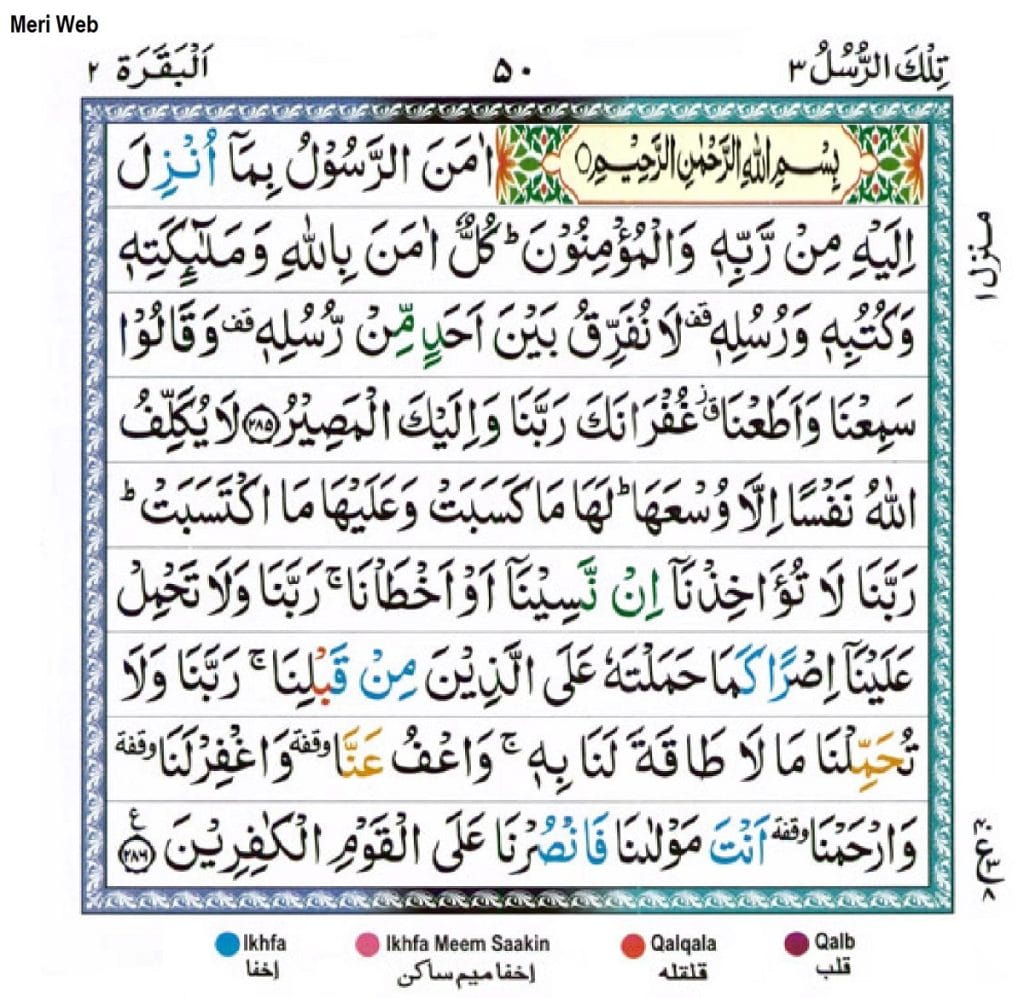 Meri Web
تِلْكَ الرُّسُلُ ٣
٥٠
اَلْبَقَرَة ٢
بِسْمِ اللّٰهِ الرَّحْمٰنِ الرَّحِيْمِ ○ اٰمَنَ الرَّسُوْلُ بِمَاۤ اُنْزِلَ
اِلَيْهِ مِنْ رَّبِّهٖ وَالْمُؤْمِنُوْنَ ؕ كُلٌّ اٰمَنَ بِاللّٰهِ وَمَلٰٓئِكَتِهٖ
وَكُتُبِهٖ وَرُسُلِهٖ قف لَا نُفَرِّقُ بَيْنَ اَحَدٍ مِّنْ رُّسُلِهٖ قف وَقَالُوْا
سَمِعْنَا وَاَطَعْنَا ق ز غُفْرَانَكَ رَبَّنَا وَاِلَيْكَ الْمَصِيْرُ ٢٨٥ لَا يُكَلِّفُ
اللّٰهُ نَفْسًا اِلَّا وُسْعَهَا ؕ لَهَا مَا كَسَبَتْ وَعَلَيْهَا مَا اكْتَسَبَتْ ؕ
رَبَّنَا لَا تُؤَاخِذْنَاۤ اِنْ نَّسِيْنَاۤ اَوْ اَخْطَاْنَا ۚ رَبَّنَا وَلَا تَحْمِلْ
عَلَيْنَاۤ اِصْرًا كَمَا حَمَلْتَهٗ عَلَى الَّذِيْنَ مِنْ قَبْلِنَا ۚ رَبَّنَا وَلَا
تُحَمِّلْنَا مَا لَا طَاقَةَ لَنَا بِهٖ ۚ وَاعْفُ عَنَّا وقفة وَاغْفِرْ لَنَا وقفة
وَارْحَمْنَا وقفة اَنْتَ مَوْلٰىنَا فَانْصُرْنَا عَلَى الْقَوْمِ الْكٰفِرِيْنَ ٢٨٦ ع
منزل ١
Ikhfa
إخفا
Ikhfa Meem Saakin
إخفا ميم ساكن
Qalqala
قلقله
Qalb
قلب